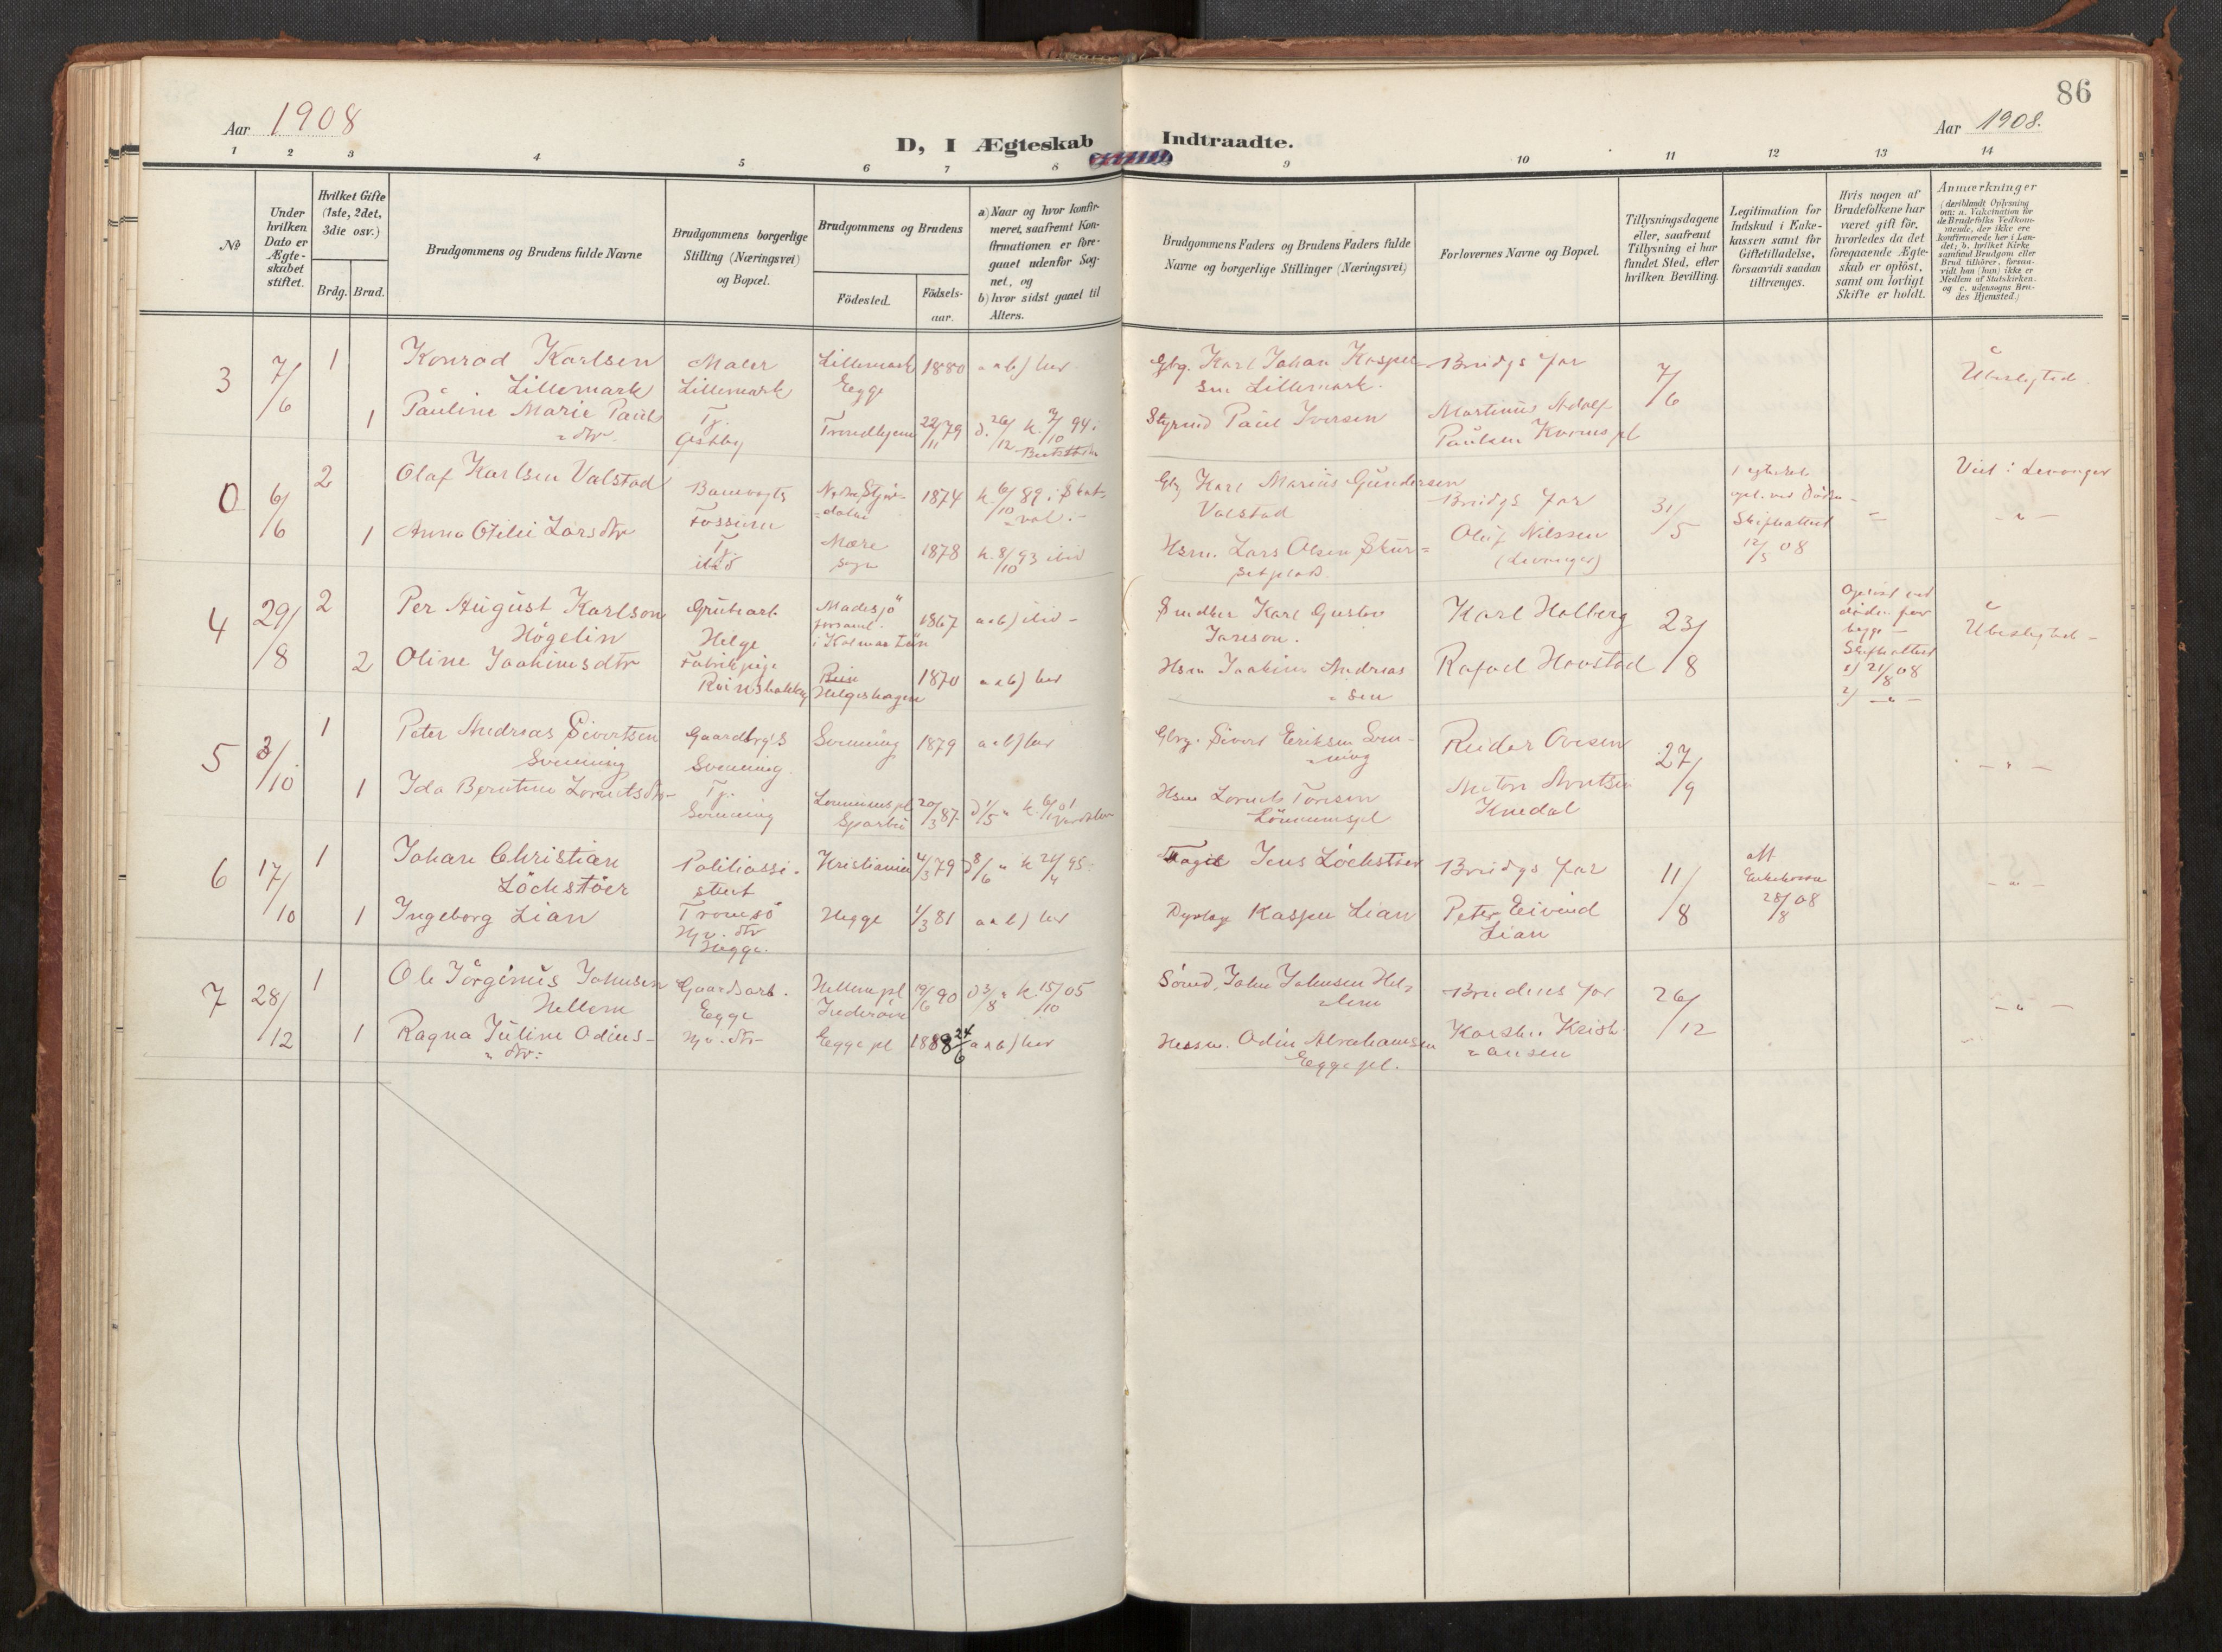 86
Aar 1908
Aar 1908.
D, I Ægteskab Indtraadte.
1 2 3 4 5 6 7 8 9 10 11 12 13 14
No
Under
hvilken
Dato er
Ægte-
skabet
stiftet.
Hvilket Gifte
(1ste, 2det,
3die osv.)
Brdg. Brud.
Brudgommens og Brudens fulde Navne
Brudgommens borgerlige
Stilling (Næringsvei)
og Bopæl.
Brudgommens og Brudens
Födested.
Födsels-
aar.
a) Naar og hvor konfir-
meret, saafremt Kon-
firmationen er fore-
gaaet udenfor Sog-
net, og
b) hvor sidst gaaet til
Alters.
Brudgommens Faders og Brudens Faders fulde
Navne og borgerlige Stillinger (Næringsvei)
Forlovernes Navne og Bopæl.
Tillysningsdagene
eller, saafremt
Tillysning ei har
fundet Sted, efter
hvilken Bevilling.
Legitimation for
Indskud i Enke-
kassen samt for
Giftetilladelse,
forsaavidt saadan
tiltrænges.
Hvis nogen af
Brudefolkene har
været gift för,
hvorledes da det
foregaaende Ægte-
skab er oplöst,
samt om lovligt
Skifte er holdt.
Anmærkninger
(deriblandt Oplysning
om: a. Vakcination for
de Brudefolks Vedkom-
mende, der ikke ere
konfirmerede her i Lan-
det; b. hvilket Kirke
samfund Brudgom eller
Brud tilhörer, forsaa-
vidt han (hun) ikke er
Medlem af Statskirken.
og c. udensogns Bru-
des Hjemsted.)
3
7/6
1
Konrad Karlsen
Lillemark
Maler
Lillemark
Lillemark
Egge
1880
a & b) her
Gbg. Karl Johan Kasper-
sen Lillemark.
Brudgs far
7/6
Ubeslegted.
1
Pauline Marie Pauls
dtr.
Tj.
Østby
Trondhjem
22/11 79
d. 26/12 k. 7/10 94 i
Styrmd Paul Iversen
Martinus Adolf
Paulsen
0
6/6
2
Olaf Karlsen Valstad
Banevogts
Fossum
Nedre Stjør-
dalen
1874
k. 6/10 89 i Skat-
val.
Gbg Karl Marius Gundersen
Valstad
Brudgs far
31/5
1 egteskab
opl. ved döden
Skifteattest
12/5 08
Viet i Levanger
1
Anna Otilie Larsdtr
Tj
ibid
Mære
sogn
1878
k. 8/10 93 ibid
Hsm. Lars Olsen
Oluf Nilssen
(Levanger)
4
29/8
2
Per August Karlson
Högelin
Grubearb.
Helge
Madesjö
forsaml.
i Kalmar Län
1867
a & b) ibid
Snedker Karl Gustav
Karl Halberg
23/8
Oplöst ved
döden for
begge -
Skifteattest
1) 21/8 08
2) - " -
Ubeslegted -
2
Oline Joakimsdtr
Fabrikpige
1870
a & b) her
Hsm Joakim Andreas
sen
Rafael Hovstad
5
3/10
1
Peter Andreas Sivertsen
Svenning
Gaardbrgs
Svenning
Svenning
1879
a & b) her
Gbrg. Sivert Eriksen Sven-
ning
Reidar Ovesen
27/9
- " -
1
Ida Bjerntine Lorntsdtr
Tj.
Svenning
Sparbu
20/3 87
d 1/5 "
Hsm Lornts Tøresen
6
17/10
1
Johan Christian
Löchstöer
Politiassi-
stent
Tromsö
Kristiania
4/3 79
d 8/6 " k 21/4 95
Foged Jens Löchstöer
Brudgs far
11/8
att
Enkekasse
28/8 08
- " -
1
Ingeborg Lian
Hjv. dtr
Hegge.
Hegge
1/3 81
a & b) her
Dyrlæge Kasper Lian
Peter Eivind
Lian
7
28/12
1
Ole Jörginus Johnsen
Hellem
Gaardsarb.
Egge
Hellem pl
Inderöen
19/6 90
d 3/8 " k. 15/10 05
John Johnsen Hel-
lem
Brudens far
26/12
- " -
1
Ragna Juline Odins-
dtr.
Hjv. dtr
Egge pl
1888 24/6
a & b) her
Husm. Odin Abrahamsen
Egge pl.
Karsten Kristi-
ansen